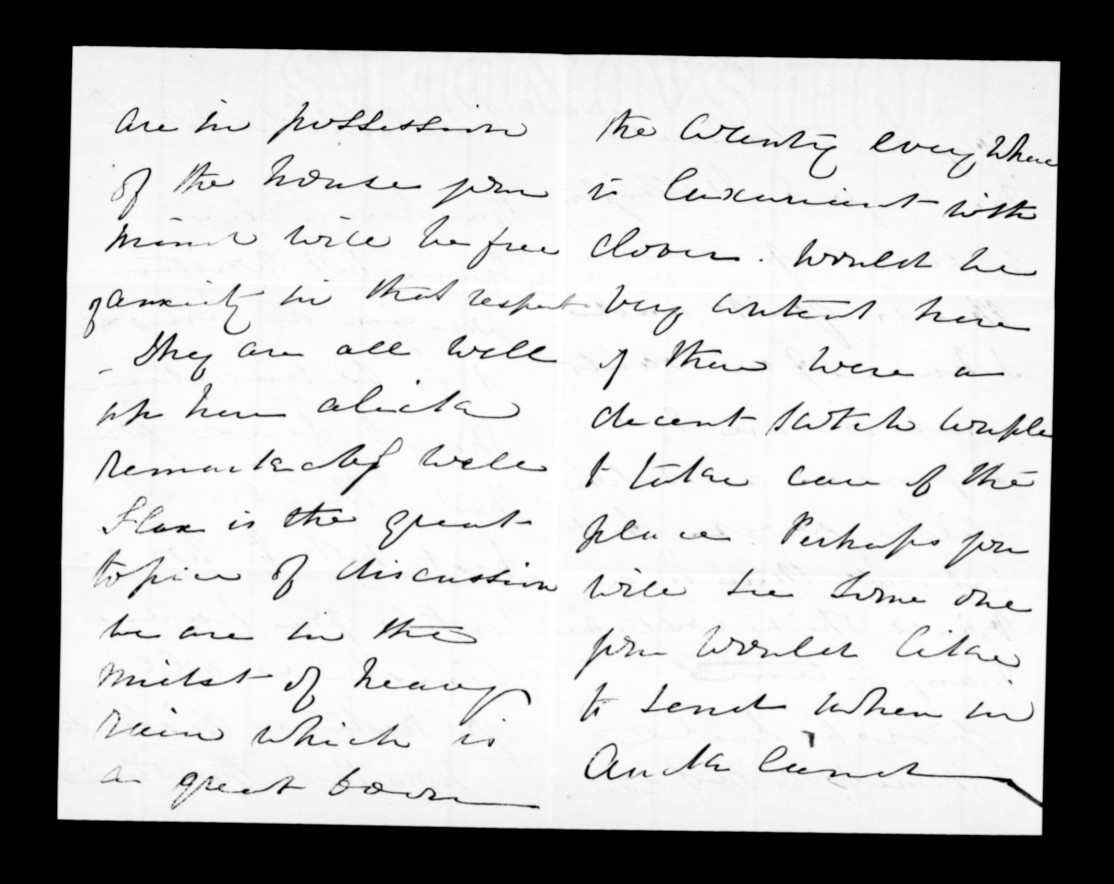 are in possession
of the house your
mind will be free
of anxiety in that respect
- They are all well
up here alicka
remarkably well
Flax is the great
topic of discussion
we are in the
midst of heavy
rain which is
a great boon
the country everywhere
is luxuriant with
clover. Would be
very content here
if there were a
decent Scotch couple
to take care of the
place. Perhaps you
will see some one
you would like
to send when in
Auckland